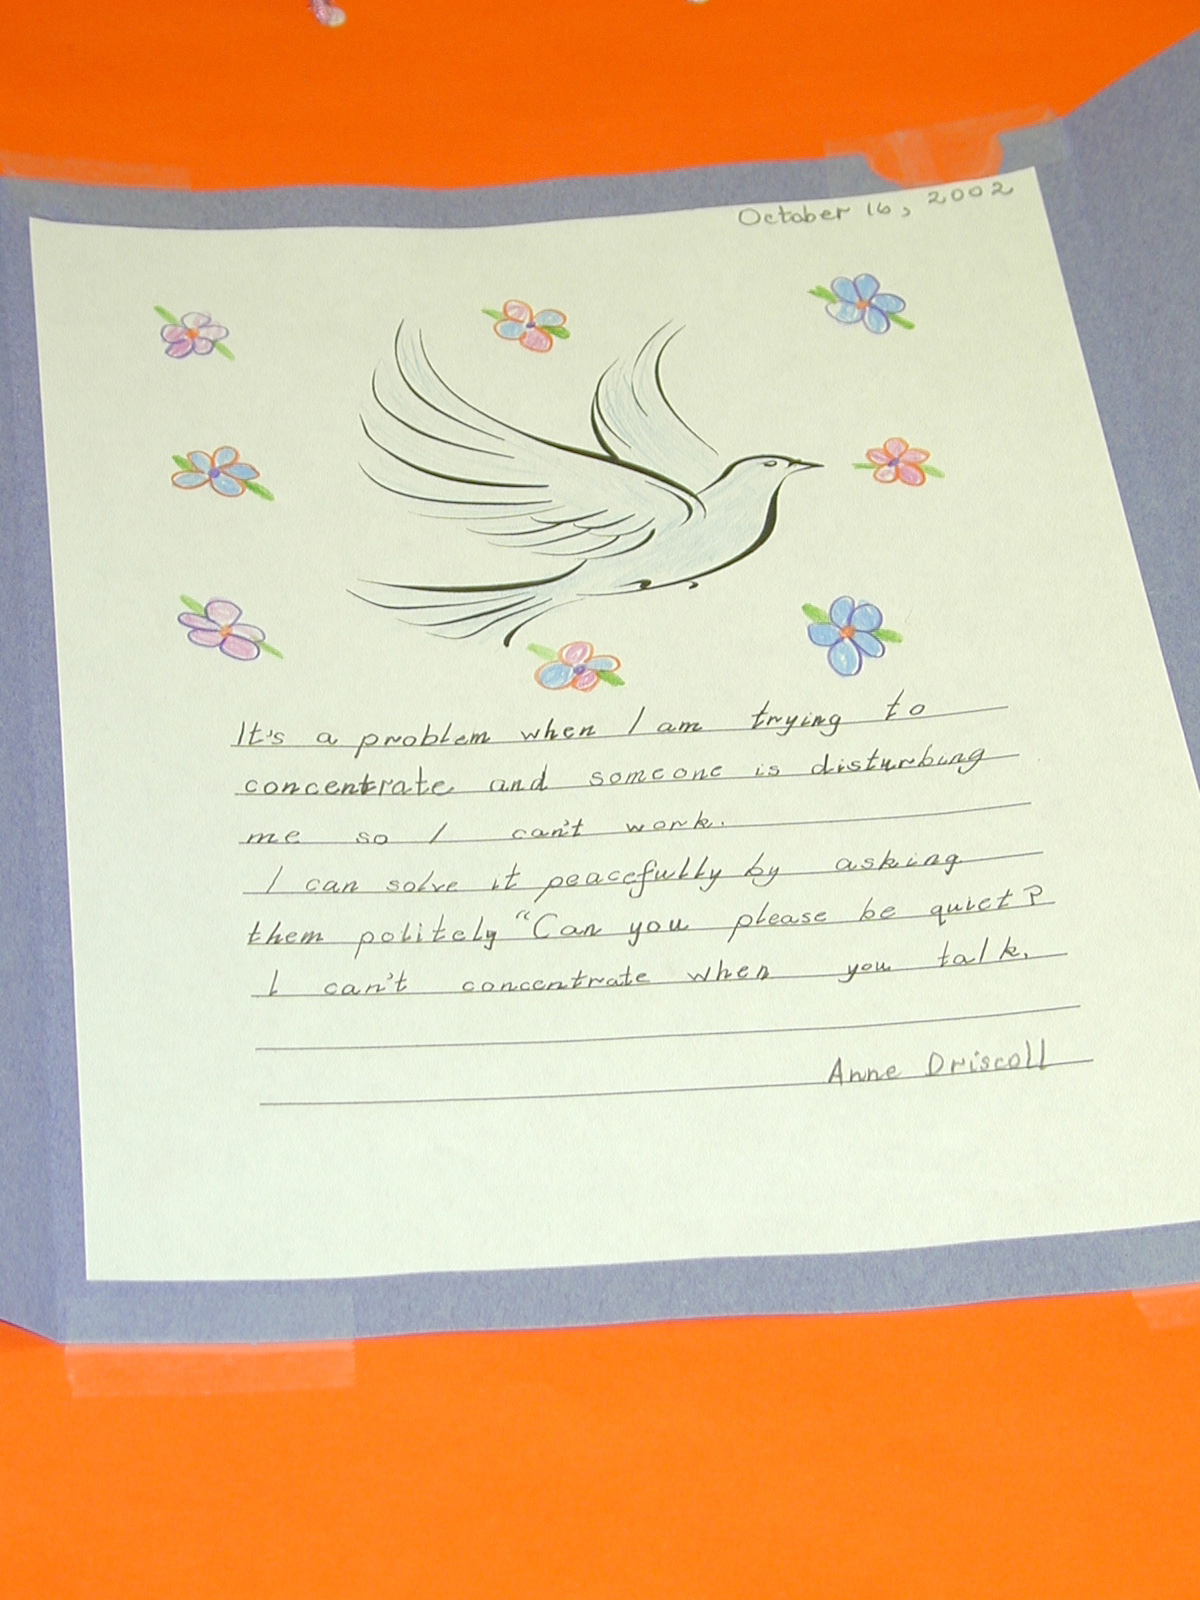 October 16, 2002
It's a problem when I am trying to
concentrate and someone is disturbing
me so I can't work.
I can solve it peacefully by asking
them politely "Can you please be quiet?
I can't concentrate when you talk.
Anne Driscoll